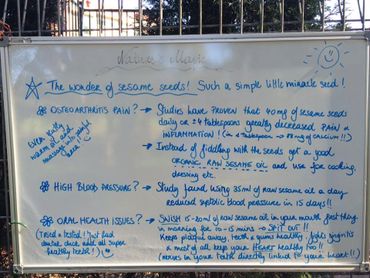 Nature's Magic
The wonder of sesame seeds! Such a simple little miracle seed!
OSTEOARTHRITIS PAIN? → Studies have PROVEN that 40mg of sesame seeds
daily or ≥4 tablespoons greatly decreased PAIN &
INFLAMMATION! (in 1 tablespoon → 88mg of calcium!!)
Even gently
warm oil and
massage into painful
area
→ Instead of fiddling with the seeds get a good
ORGANIC RAW SESAME OIL and use for cooking,
dressing etc.
HIGH BLOOD PRESSURE? → Study found using 35ml of raw sesame oil a day
reduced systolic blood pressure in 15 days!!
ORAL HEALTH ISSUES? → SWISH 15-20ml of raw sesame oil in your mouth first thing
in morning for 10-15 mins → SPIT OUT!!
Keeps plaque away, teeth & gums healthy, fights gingivitis
& most of all keep your HEART healthy too!!
(nerves in your teeth directly linked to your heart!!)
(Tried & tested! Just had
dental check and all super
healthy teeth!)